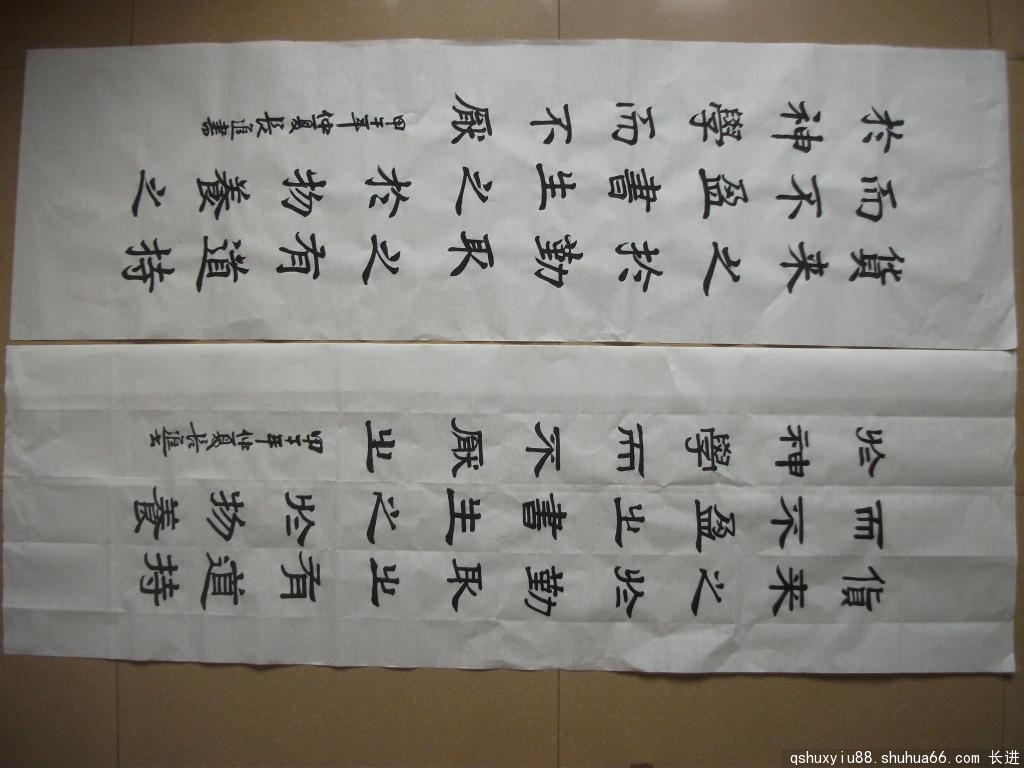 貨来之於勤取之有道持
而不盈書生之於物養之
於神學而不厭
甲午年仲夏長進書
貨来之於勤取之有道持
而不盈之書生之於物養
於神學而不厭之
甲午年仲夏長進书
qshuxyiu88.shuhua66.com 长进